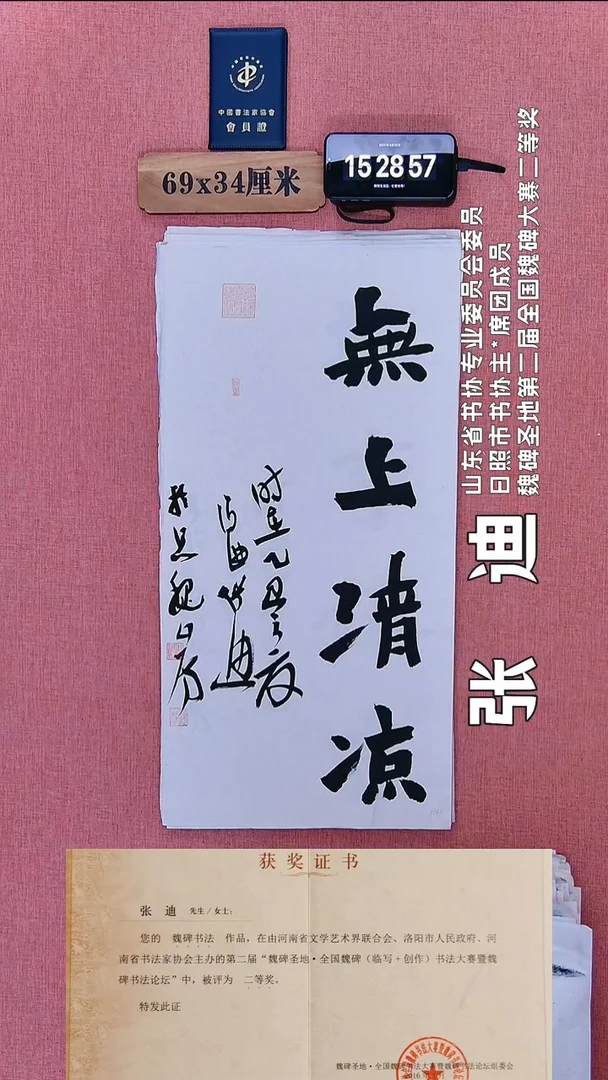 中國書法家協會
會員證
69x34厘米
15 28 57
山东省书协专业委员会委员
日照市书协主*席团成员
魏碑圣地第二届全国魏碑大赛二等奖
张 迪
無上清凉
获奖证书
张 迪 先生/女士:
您的 魏碑书法 作品，在由河南省文学艺术界联合会、洛阳市人民政府、河
南省书法家协会主办的第二届“魏碑圣地·全国魏碑（临写+创作）书法大赛暨魏
碑书法论坛”中，被评为 二等奖。
特发此证
魏碑圣地·全国魏碑书法大赛暨魏碑书法论坛组委会
2016